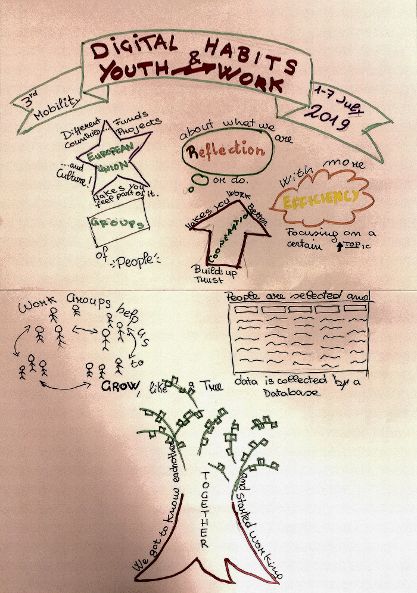 DIGITAL HABITS
& YOUTH WORK
3rd Mobility
1-7 July
2019
Different
countries
Funds
Projects
EUROPEAN
UNION
...and
Culture!
Makes you
feel part of it.
GROUPS
of "People"
about what we are
Reflection
or do.
Makes you work better
COOPERATION
Build up
Trust
with more
EFFICIENCY
Focusing on a
certain TOPIC
Work Groups help us to
GROW, like a Tree
People are selected and
data is collected by a
Database
We got to know eachother
TOGETHER
and started working